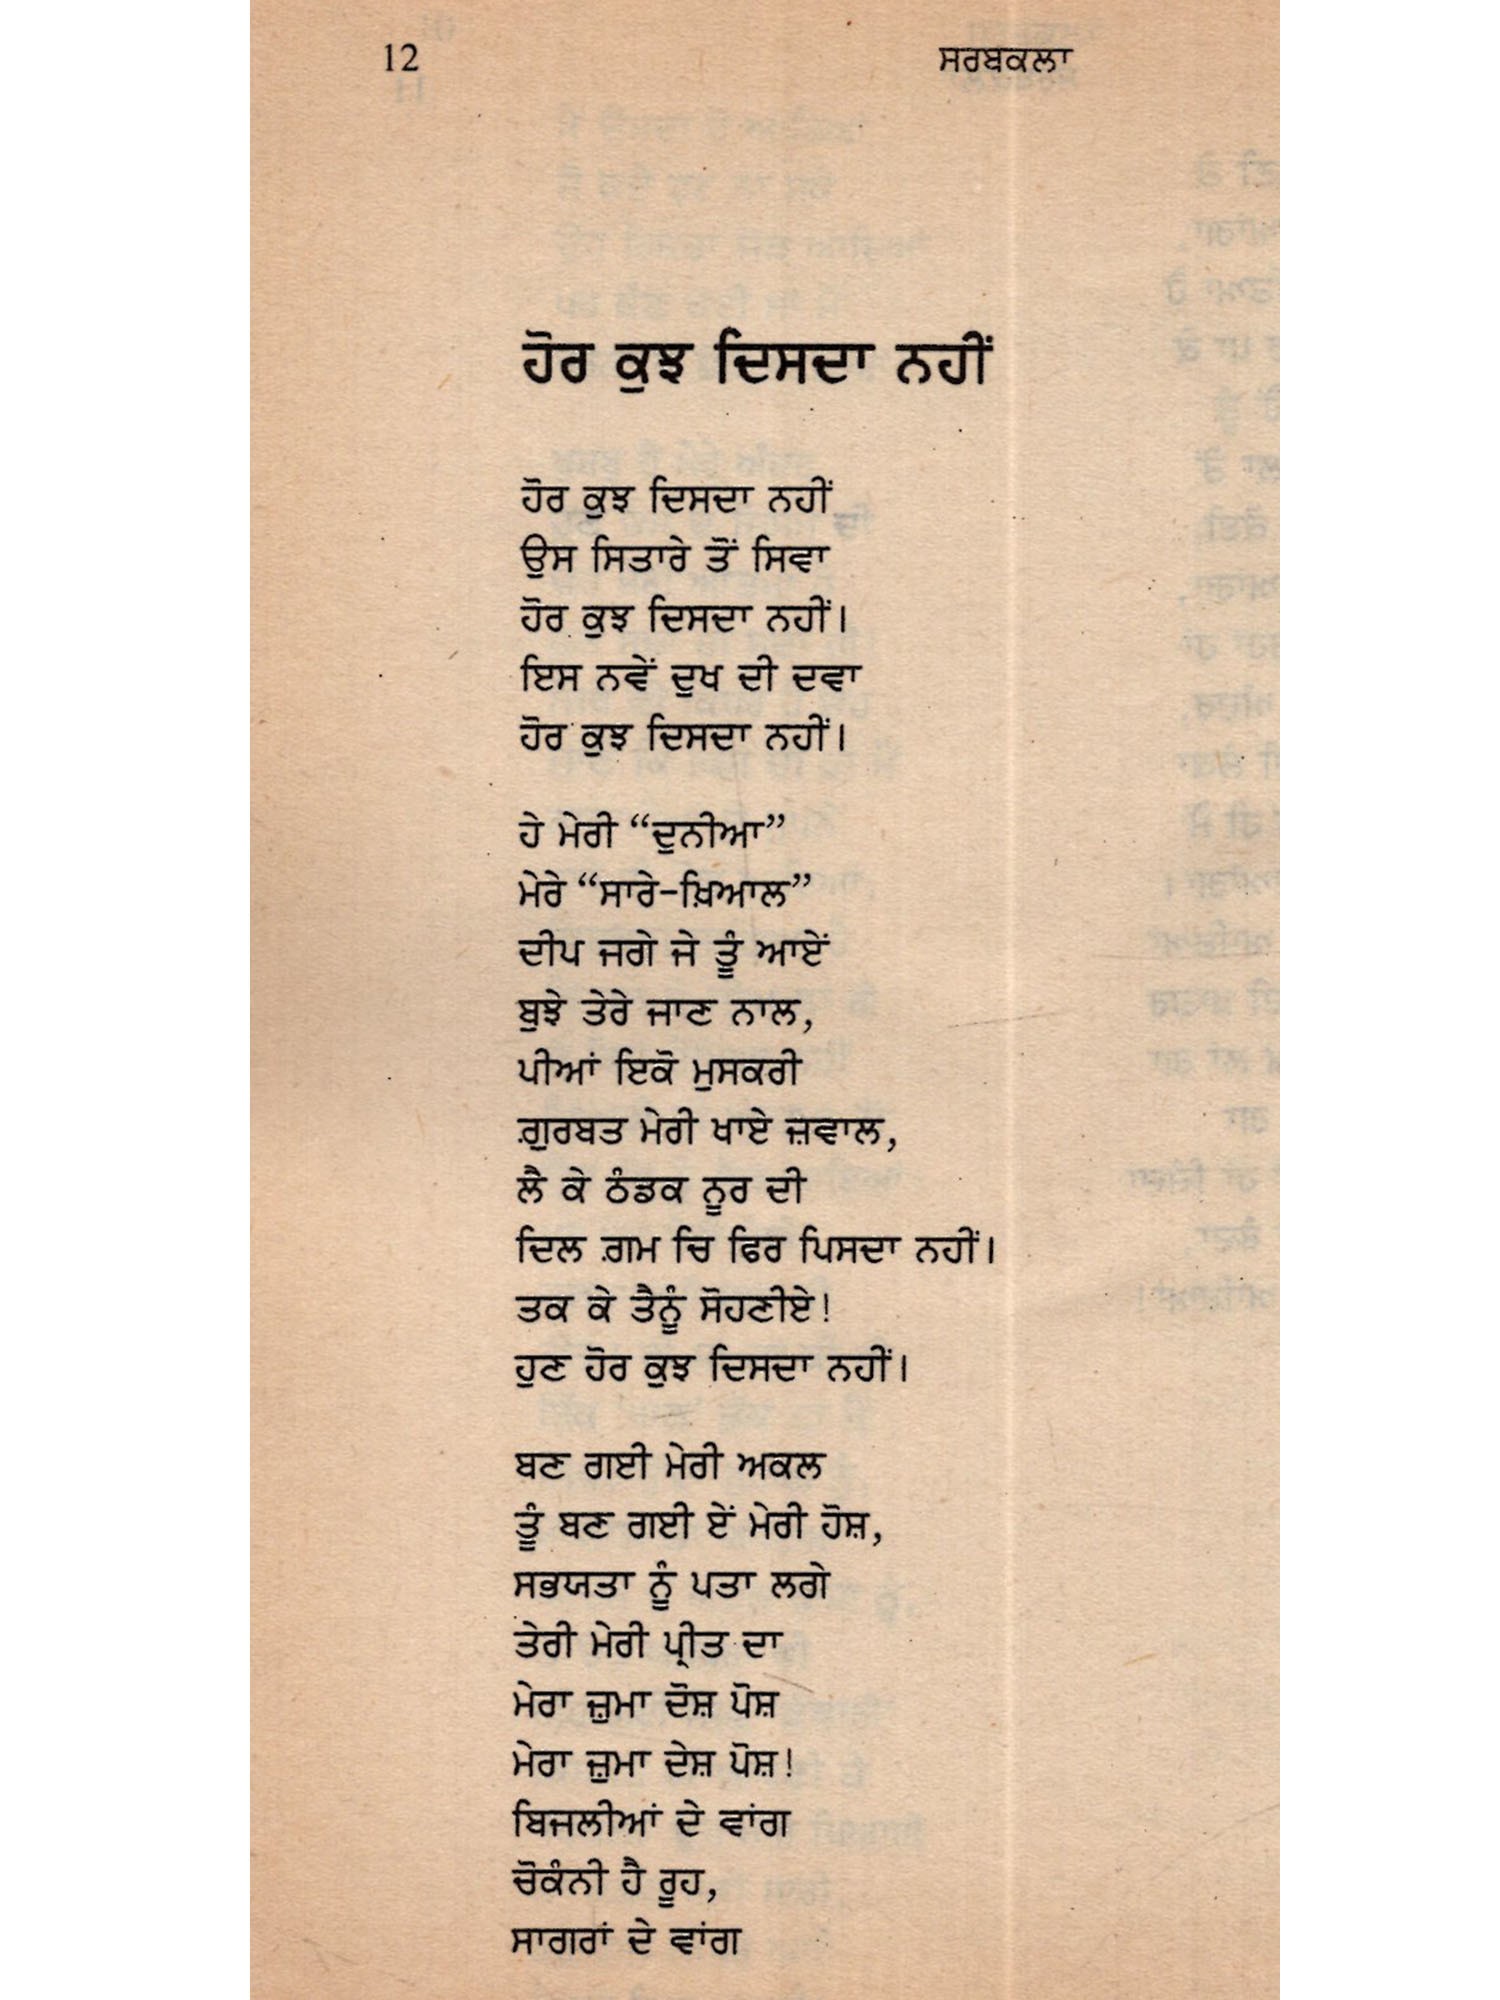 12 ਸਰਬਕਲਾ
ਹੋਰ ਕੁਝ ਦਿਸਦਾ ਨਹੀਂ
ਹੋਰ ਕੁਝ ਦਿਸਦਾ ਨਹੀਂ
ਉਸ ਸਿਤਾਰੇ ਤੋਂ ਸਿਵਾ
ਹੋਰ ਕੁਝ ਦਿਸਦਾ ਨਹੀਂ।
ਇਸ ਨਵੇਂ ਦੁਖ ਦੀ ਦਵਾ
ਹੋਰ ਕੁਝ ਦਿਸਦਾ ਨਹੀਂ।
ਹੇ ਮੇਰੀ “ਦੁਨੀਆ”
ਮੇਰੇ “ਸਾਰੇ-ਖ਼ਿਆਲ”
ਦੀਪ ਜਗੇ ਜੇ ਤੂੰ ਆਏਂ
ਬੁਝੇ ਤੇਰੇ ਜਾਣ ਨਾਲ,
ਪੀਆਂ ਇਕੋ ਮੁਸਕਰੀ
ਗ਼ੁਰਬਤ ਮੇਰੀ ਖਾਏ ਜ਼ਵਾਲ,
ਲੈ ਕੇ ਠੰਡਕ ਨੂਰ ਦੀ
ਦਿਲ ਗ਼ਮ ਚਿ ਫਿਰ ਪਿਸਦਾ ਨਹੀਂ।
ਤਕ ਕੇ ਤੈਨੂੰ ਸੋਹਣੀਏ!
ਹੁਣ ਹੋਰ ਕੁਝ ਦਿਸਦਾ ਨਹੀਂ।
ਬਣ ਗਈ ਮੇਰੀ ਅਕਲ
ਤੂੰ ਬਣ ਗਈ ਏਂ ਮੇਰੀ ਹੋਸ਼,
ਸਭਯਤਾ ਨੂੰ ਪਤਾ ਲਗੇ
ਤੇਰੀ ਮੇਰੀ ਪ੍ਰੀਤ ਦਾ
ਮੇਰਾ ਜ਼ੁਮਾ ਦੋਸ਼ ਪੋਸ਼
ਮੇਰਾ ਜ਼ੁਮਾ ਦੇਸ਼ ਪੋਸ਼!
ਬਿਜਲੀਆਂ ਦੇ ਵਾਂਗ
ਚੋਕੰਨੀ ਹੈ ਰੂਹ,
ਸਾਗਰਾਂ ਦੇ ਵਾਂਗ